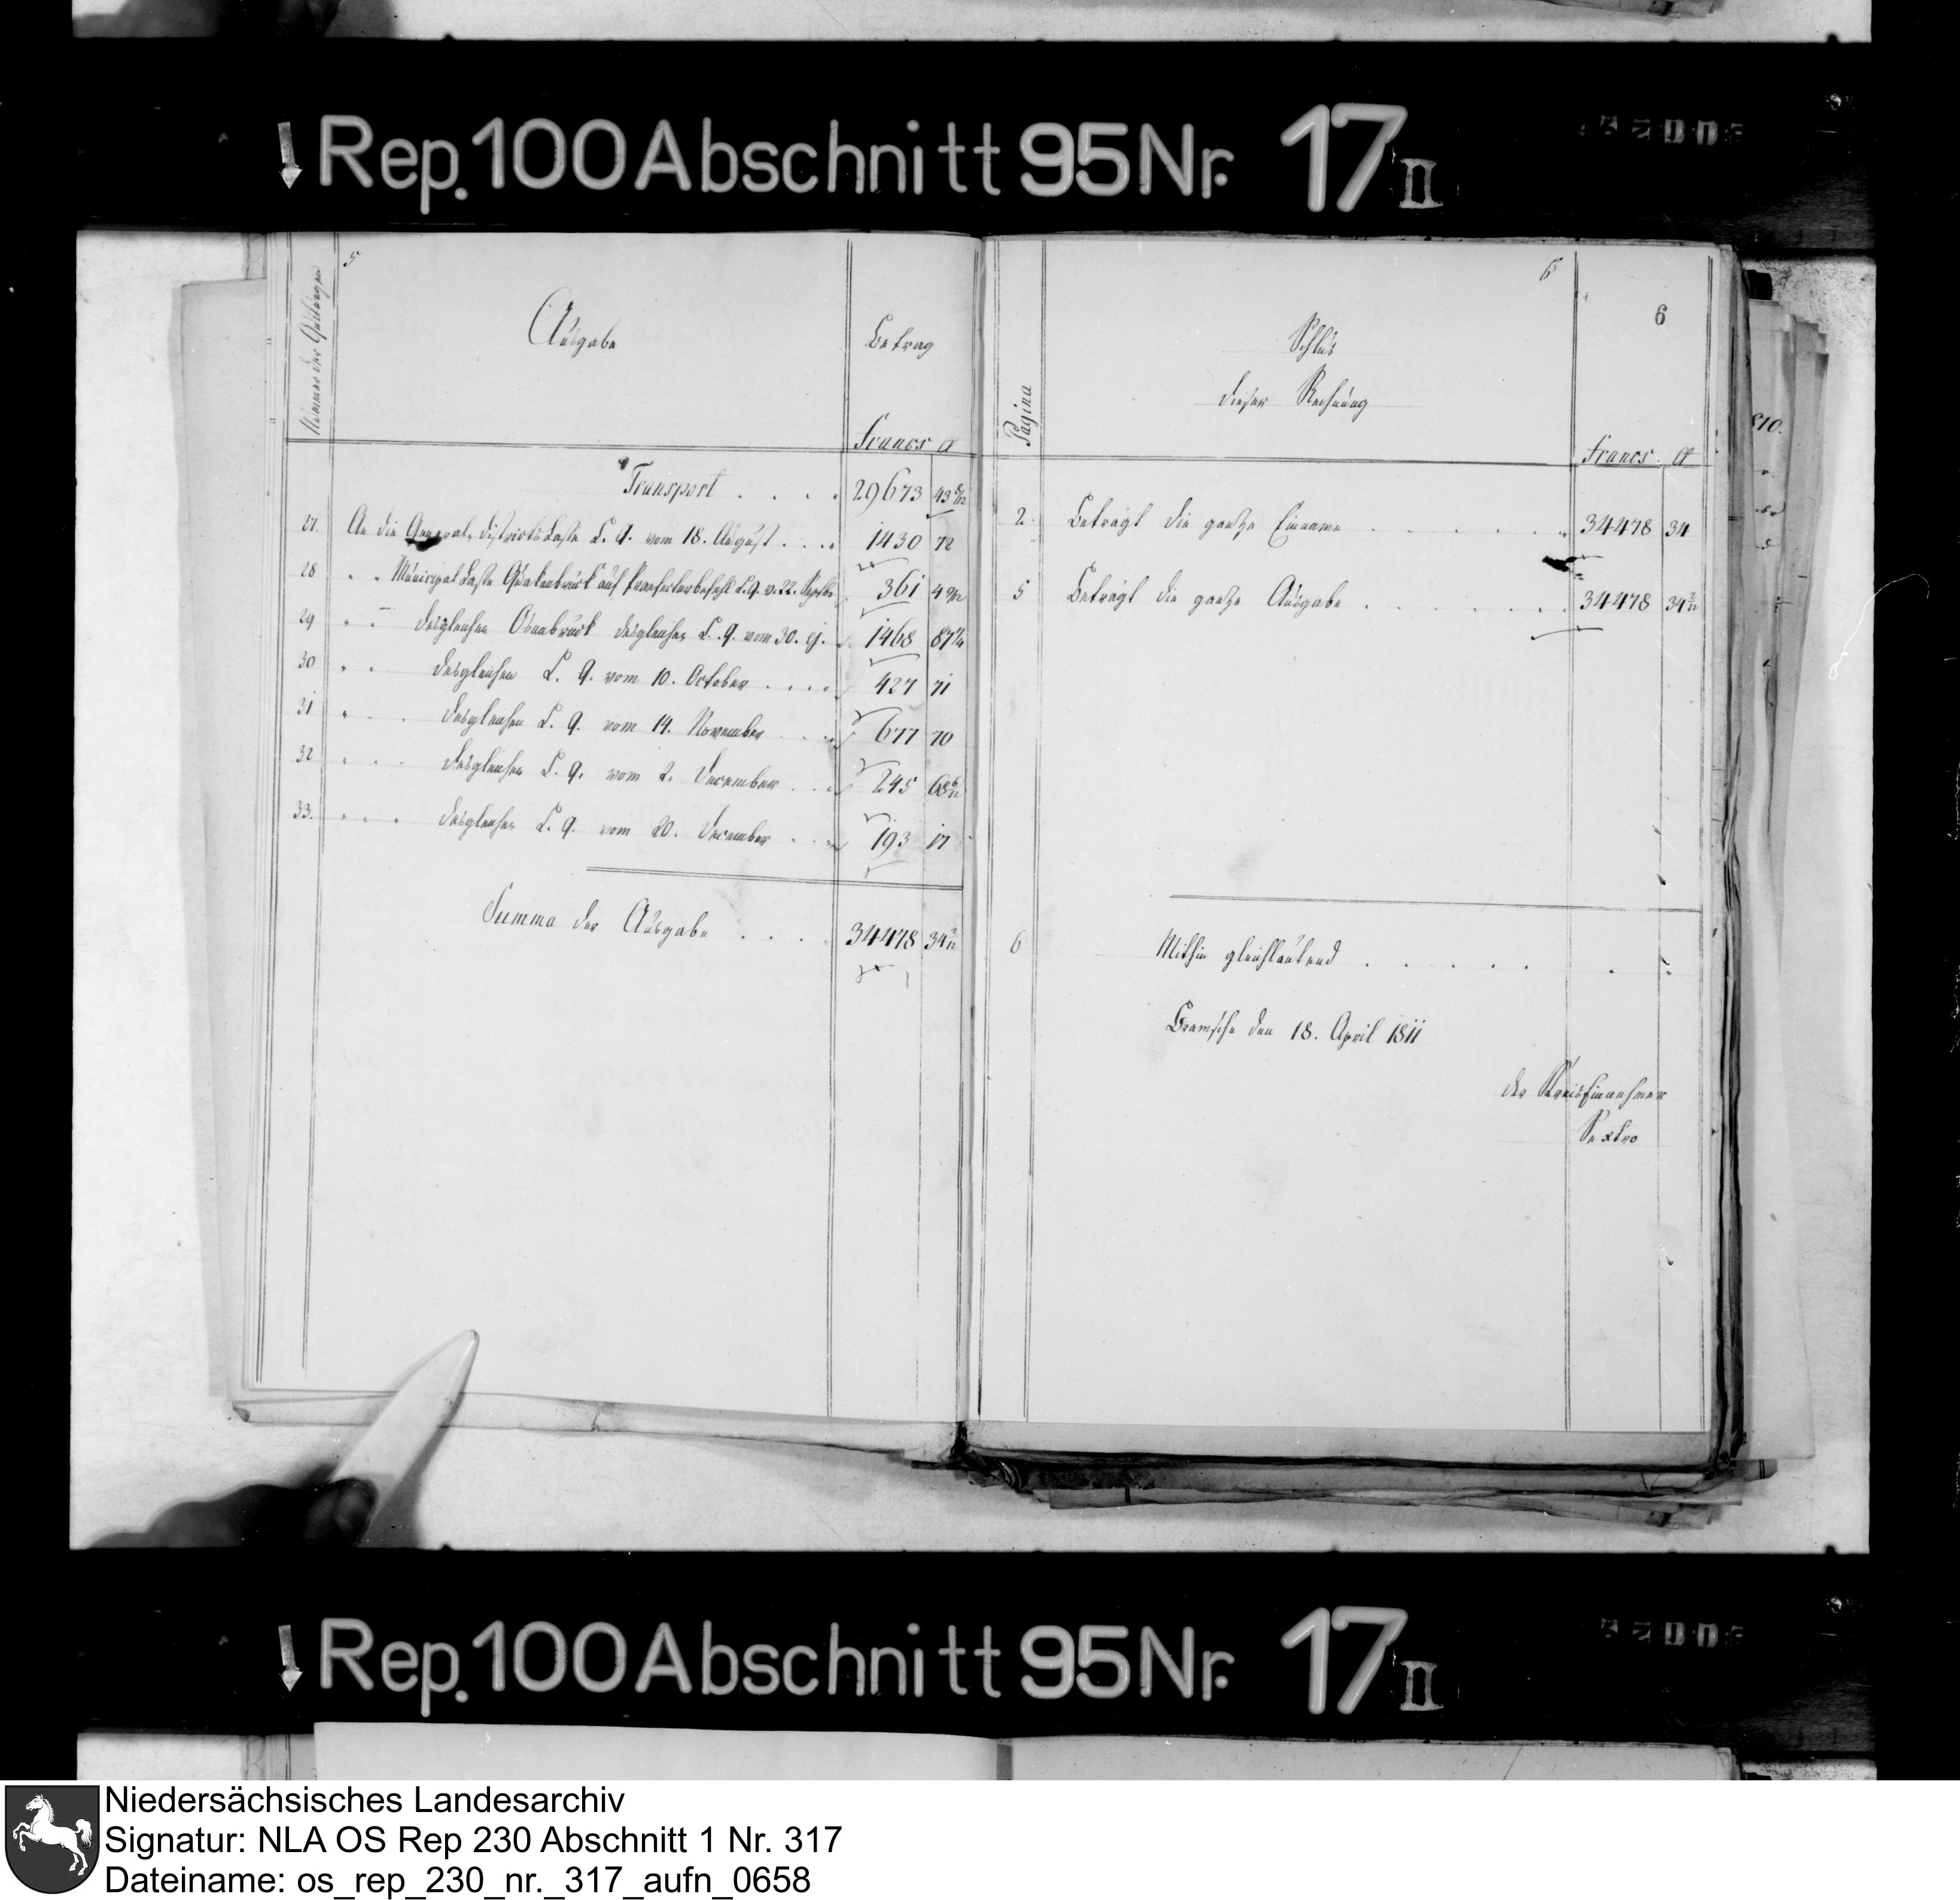 Rep. 100 Abschnitt 95 Nr. 17 II
5
Nummer der Quitungen
Ausgabe
Betrag
Francs ct
Transport . . . . 29673 43 8/12
27. An die General-Districts Casse L. Q. vom 18. August . . . . 1430 72
28 " " Municipal Casse Quakenbrück auf Praefecturbefehl L. Q. v. 22. Septbr. 361 4
29 " — desgleichen Osnabrück desgleichen L. Q. vom 30. ej. . 1468 87
30 " " desgleichen L. Q. vom 10. October . . . . 427 71
31 " . . desgleichen L. Q. vom 14. November . . . . 677 70
32 . . . desgleichen L. Q. vom 2. December . . . . 245 68 6/12
33. . . . desgleichen L. Q. vom 20. December . . . 193 17
Summa der Ausgabe . . . . 34478 34 2/12
6
6
Pagina
Schlus
dieser Rechnung
Francs. ct
2. Beträgt die gantze Einname . . . . . . . 34478 34
5 Beträgt die gantze Ausgabe . . . . . . . . 34478 34 2/12
6 Mithin gleichlautend . . . . . . "
Bramsche den 18. April 1811
der KreisEinnehmer
Sextro
Rep. 100 Abschnitt 95 Nr. 17 II
Niedersächsisches Landesarchiv
Signatur: NLA OS Rep 230 Abschnitt 1 Nr. 317
Dateiname: os_rep_230_nr._317_aufn_0658